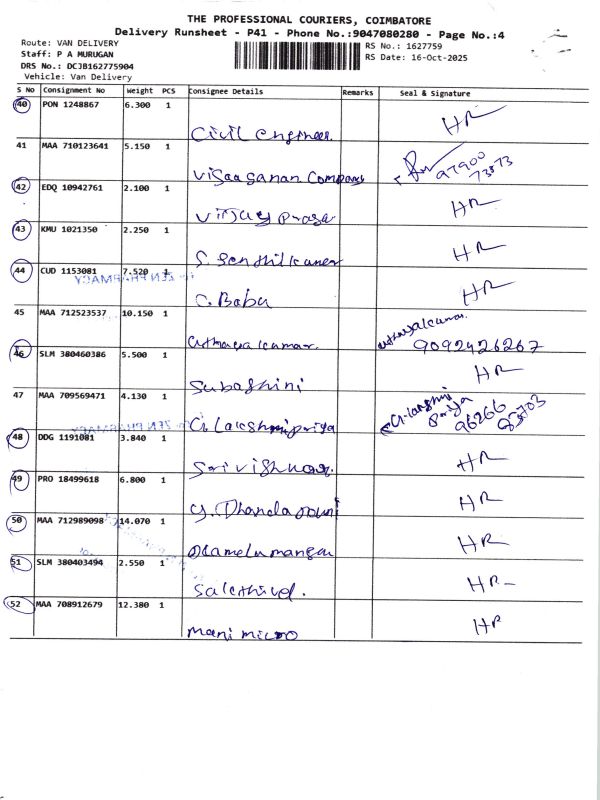 THE PROFESSIONAL COURIERS, COIMBATORE
Delivery Runsheet - P41 - Phone No.:9047080280 - Page No.:4
Route: VAN DELIVERY
Staff: P A MURUGAN
DRS No.: DCJB162775904
Vehicle: Van Delivery
RS No.: 1627759
RS Date: 16-Oct-2025
S No Consignment No Weight PCS Consignee Details Remarks Seal & Signature
40 PON 1248867 6.300 1 Civil engineer HR
41 MAA 710123641 5.150 1 97900 73873
42 EDQ 10942761 2.100 1 HR
43 KMU 1021350 2.250 1 HR
44 CUD 1153081 7.520 1 C. Babu HR
ZEN PHARMACY
45 MAA 712523537 10.150 1 uthayakumar. uthayakumar. 9092426267
46 SLM 380460386 5.500 1 Subashini HR
47 MAA 709569471 4.130 1 G. Lakshmipriya G. lakshmi Priya 96266 85703
ZEN PHARMACY
48 DDG 1191081 3.840 1 HR
49 PRO 18499618 6.800 1 HR
50 MAA 712989098 14.070 1 HR
51 SLM 380403494 2.550 1 Sakthivel. HR
52 MAA 708912679 12.380 1 Mani micro HR